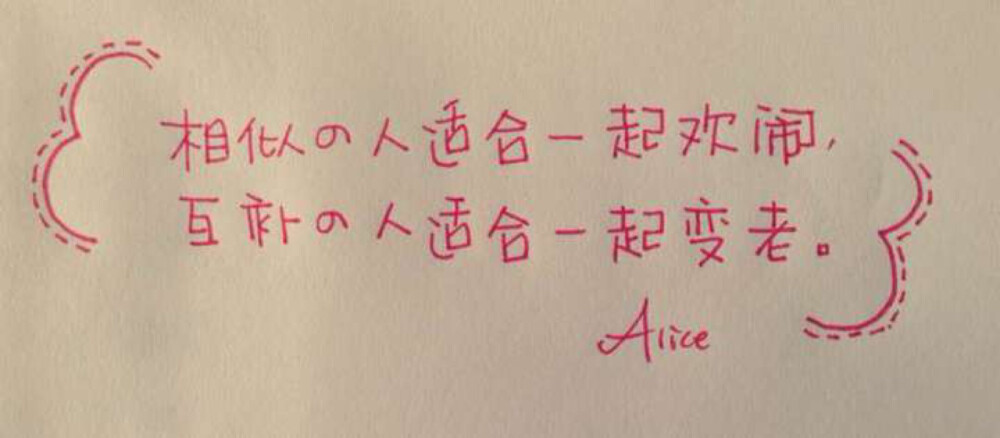 相似の人适合一起欢闹,
互补の人适合一起变老。
Alice